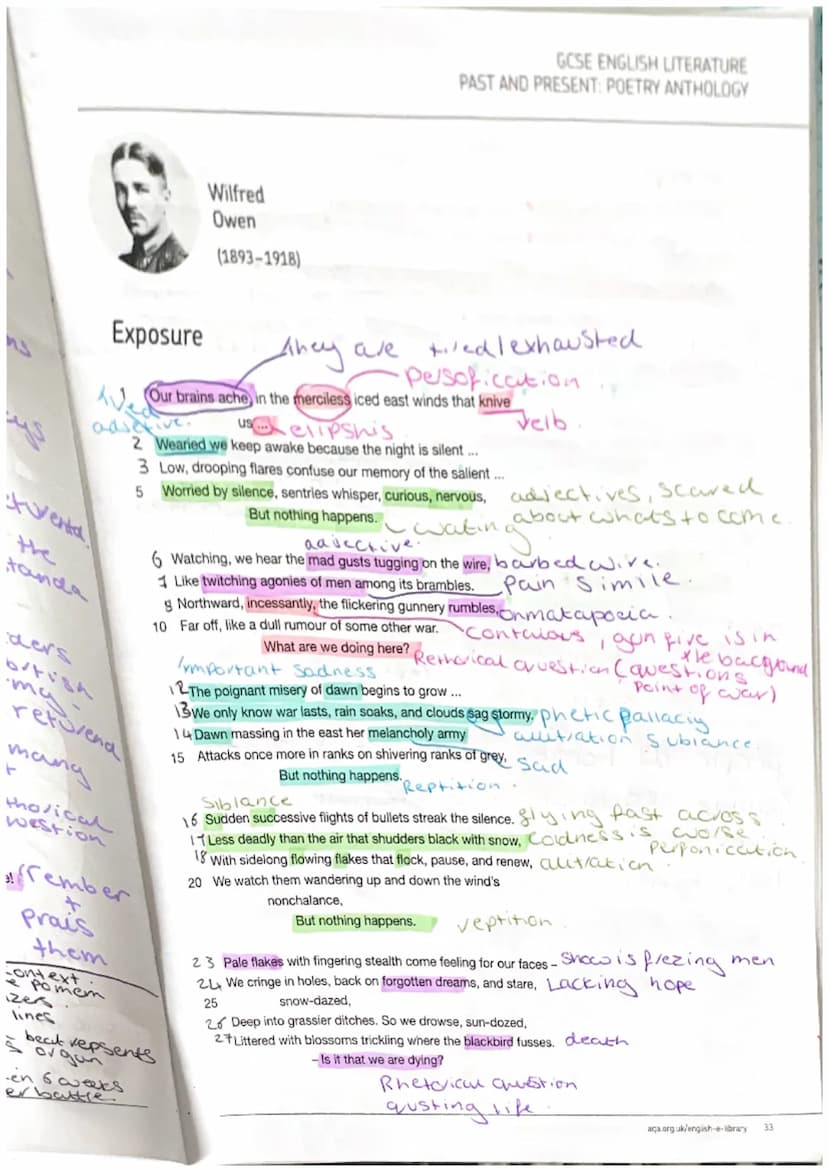 GCSE ENGLISH LITERATURE
PAST AND PRESENT: POETRY ANTHOLOGY
Wilfred
Owen
(1893–1918)
Exposure
they are tired/exhausted
persofication
1 Our brains ache, in the merciless iced east winds that knive
us ...
elipshis
verb
tired
adjective.
2 Wearied we keep awake because the night is silent ...
3 Low, drooping flares confuse our memory of the salient ...
5 Worried by silence, sentries whisper, curious, nervous, adjectives, scared
But nothing happens. about whats to come.
wating
adjective.
6 Watching, we hear the mad gusts tugging on the wire, barbed wire.
7 Like twitching agonies of men among its brambles. pain simile.
8 Northward, incessantly, the flickering gunnery rumbles, onmatapoeia.
10 Far off, like a dull rumour of some other war. gun fire is in
What are we doing here? the bacground
Rethorical question (questions
point of war)
important sadness
12 The poignant misery of dawn begins to grow ...
13 We only know war lasts, rain soaks, and clouds sag stormy, phetic pallaciy
14 Dawn massing in the east her melancholy army
15 Attacks once more in ranks on shivering ranks of grey, sad
But nothing happens.
Reptition.
Siblance
16 Sudden successive flights of bullets streak the silence. flying past across
17 Less deadly than the air that shudders black with snow, coldness is worse
18 With sidelong flowing flakes that flock, pause, and renew,
20 We watch them wandering up and down the wind's
nonchalance,
But nothing happens. reptition.
23 Pale flakes with fingering stealth come feeling for our faces – Snow is frezing men
24 We cringe in holes, back on forgotten dreams, and stare, Lacking hope
25 snow-dazed,
26 Deep into grassier ditches. So we drowse, sun-dozed,
27 Littered with blossoms trickling where the blackbird fusses. death
– Is it that we are dying?
Rhetorical question
qusting life.
aqa.org.uk/english-e-library 33
the
mang
prais
them
lines